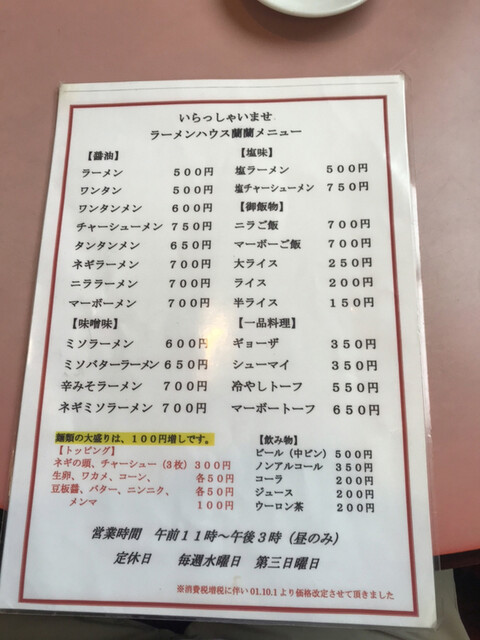 いらっしゃいませ
ラーメンハウス蘭蘭メニュー
【醤油】
ラーメン ５００円
ワンタン ５００円
ワンタンメン ６００円
チャーシューメン ７５０円
タンタンメン ６５０円
ネギラーメン ７００円
ニララーメン ７００円
マーボーメン ７００円
【味噌味】
ミソラーメン ６００円
ミソバターラーメン ６５０円
辛みそラーメン ７００円
ネギミソラーメン ７００円
【塩味】
塩ラーメン ５００円
塩チャーシューメン ７５０円
【御飯物】
ニラご飯 ７００円
マーボーご飯 ７００円
大ライス ２５０円
ライス ２００円
半ライス １５０円
【一品料理】
ギョーザ ３５０円
シューマイ ３５０円
冷やしトーフ ５５０円
マーボートーフ ６５０円
麺類の大盛りは、１００円増しです。
【トッピング】
ネギの頭、チャーシュー（３枚）３００円
生卵、ワカメ、コーン、 各５０円
豆板醤、バター、ニンニク、 各５０円
メンマ １００円
【飲み物】
ビール（中ビン） ５００円
ノンアルコール ３５０円
コーラ ２００円
ジュース ２００円
ウーロン茶 ２００円
営業時間 午前１１時～午後３時（昼のみ）
定休日 毎週水曜日 第三日曜日
※消費税増税に伴い 01.10.1 より価格改定させて頂きました